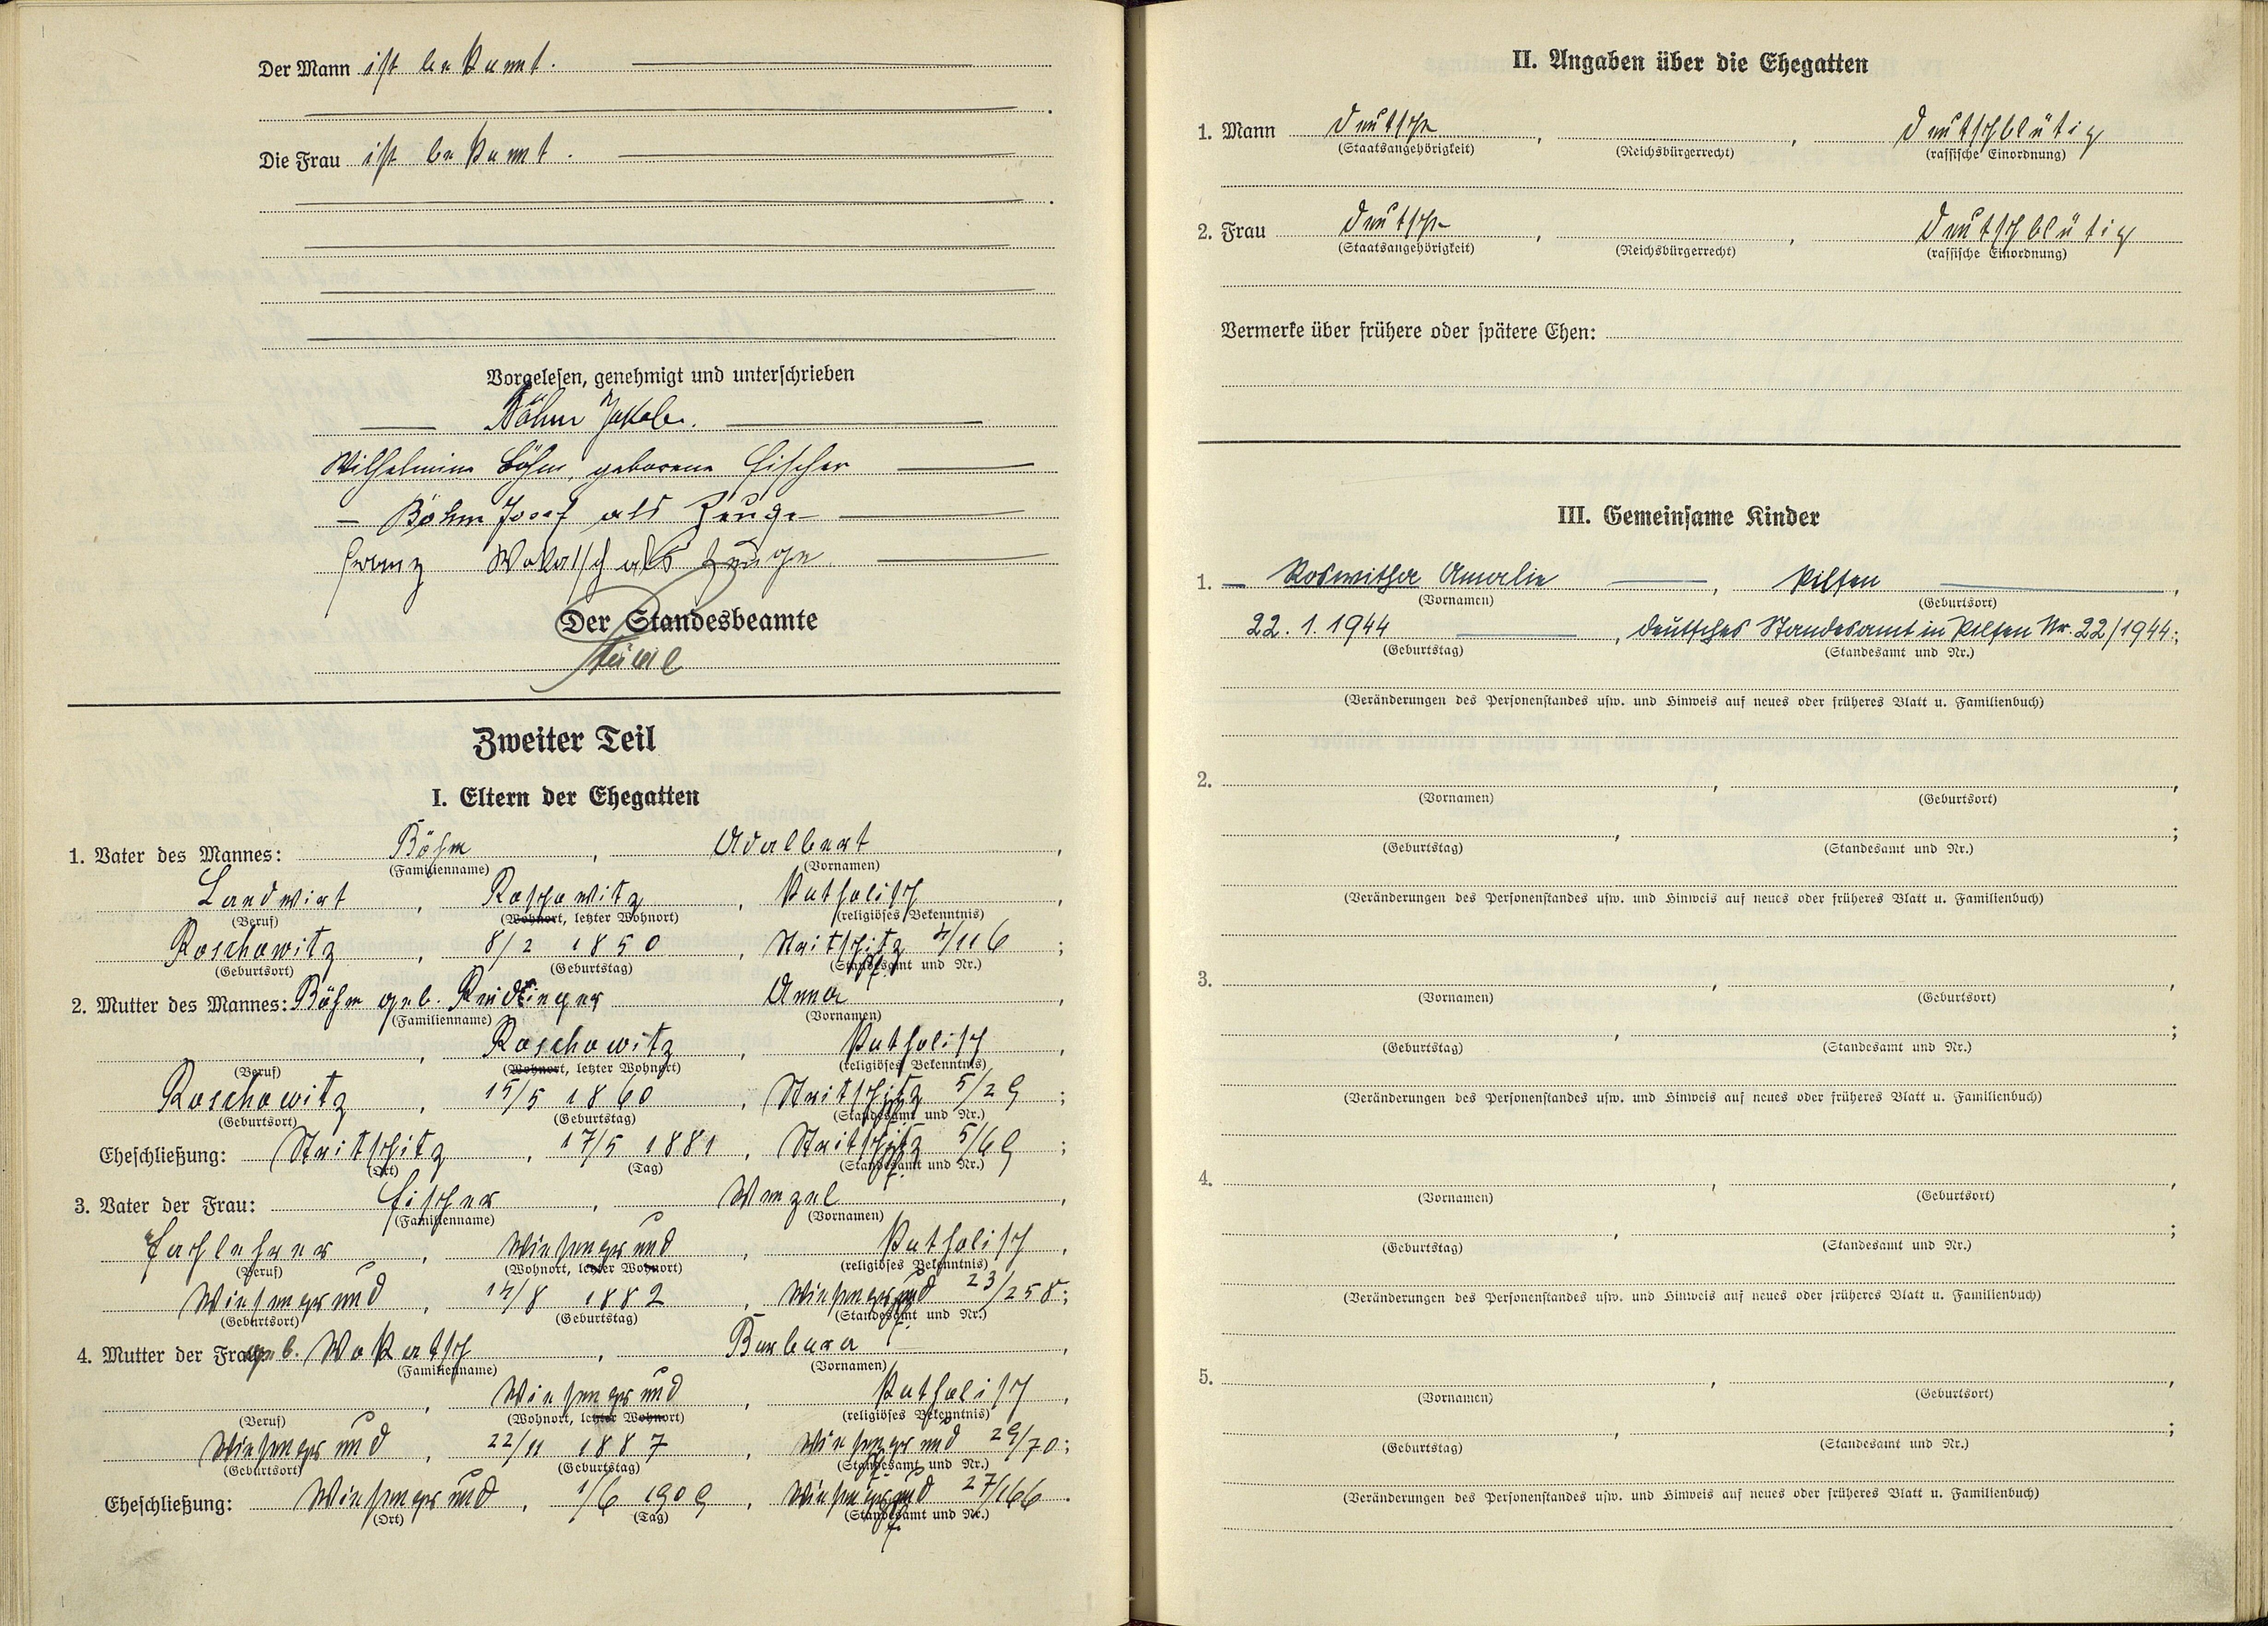 Der Mann ist bekannt.
Die Frau ist bekannt.
Vorgelesen, genehmigt und unterschrieben
Böhm Jakob.
Wilhelmine Böhm, geborene Fischer
Böhm Josef als Zeuge
Franz Wokatsch als Zeuge
Der Standesbeamte
Zweiter Teil
I. Eltern der Ehegatten
1. Vater des Mannes: Böhm, Adalbert,
(Familienname) (Vornamen)
Landwirt, Roschowitz, katholisch,
(Beruf) (Wohnort, letzter Wohnort) (religiöses Bekenntnis)
Roschowitz, 8/2 1850, Stritschitz 4/116;
(Geburtsort) (Geburtstag) (Standesamt und Nr.)
2. Mutter des Mannes: Böhm geb. Reidinger Anna,
(Familienname) (Vornamen)
, Roschowitz, katholisch,
(Beruf) (Wohnort, letzter Wohnort) (religiöses Bekenntnis)
Roschowitz, 15/5 1860, Stritschitz 5/29;
(Geburtsort) (Geburtstag) (Standesamt und Nr.)
Eheschließung: Stritschitz, 17/5 1881, Stritschitz 5/69;
(Ort) (Tag) (Standesamt und Nr.)
3. Vater der Frau: Fischer, Wenzel,
(Familienname) (Vornamen)
Fachlehrer, Wiesengrund, katholisch,
(Beruf) (Wohnort, letzter Wohnort) (religiöses Bekenntnis)
Wiesengrund, 14/8 1882, Wiesengrund 23/258;
(Geburtsort) (Geburtstag) (Standesamt und Nr.)
4. Mutter der Frau: geb. Wokatsch, Barbara,
(Familienname) (Vornamen)
, Wiesengrund, katholisch,
(Beruf) (Wohnort, letzter Wohnort) (religiöses Bekenntnis)
Wiesengrund, 22/11 1887, Wiesengrund 29/70;
(Geburtsort) (Geburtstag) (Standesamt und Nr.)
Eheschließung: Wiesengrund, 1/6 1909, Wiesengrund 27/166.
(Ort) (Tag) (Standesamt und Nr.)
II. Angaben über die Ehegatten
1. Mann Deutsche, , deutschblütig
(Staatsangehörigkeit) (Reichsbürgerrecht) (rassische Einordnung)
2. Frau Deutsche, , deutschblütig
(Staatsangehörigkeit) (Reichsbürgerrecht) (rassische Einordnung)
Vermerke über frühere oder spätere Ehen:
III. Gemeinsame Kinder
1. Roswitha Amalie, Pilsen,
(Vornamen) (Geburtsort)
22.1.1944, deutsches Standesamt in Pilsen Nr. 22/1944;
(Geburtstag) (Standesamt und Nr.)
(Veränderungen des Personenstandes usw. und Hinweis auf neues oder früheres Blatt u. Familienbuch)
2. , ,
(Vornamen) (Geburtsort)
, ;
(Geburtstag) (Standesamt und Nr.)
(Veränderungen des Personenstandes usw. und Hinweis auf neues oder früheres Blatt u. Familienbuch)
3. , ,
(Vornamen) (Geburtsort)
, ;
(Geburtstag) (Standesamt und Nr.)
(Veränderungen des Personenstandes usw. und Hinweis auf neues oder früheres Blatt u. Familienbuch)
4. , ,
(Vornamen) (Geburtsort)
, ;
(Geburtstag) (Standesamt und Nr.)
(Veränderungen des Personenstandes usw. und Hinweis auf neues oder früheres Blatt u. Familienbuch)
5. , ,
(Vornamen) (Geburtsort)
, ;
(Geburtstag) (Standesamt und Nr.)
(Veränderungen des Personenstandes usw. und Hinweis auf neues oder früheres Blatt u. Familienbuch)